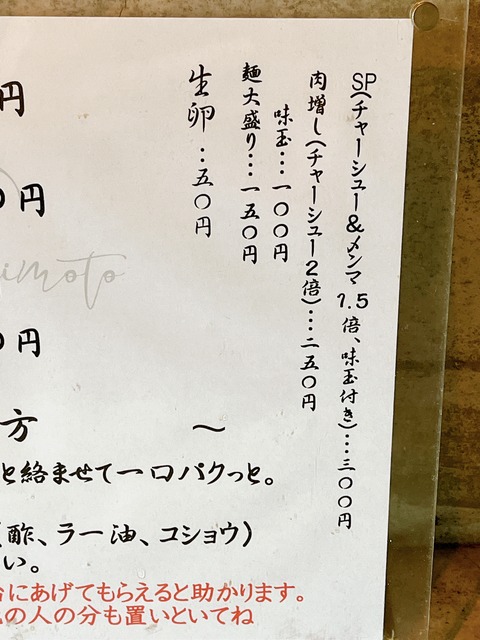 SP(チャーシュー&メンマ1.5倍、味玉付き)…三〇〇円
肉増し(チャーシュー2倍)…二五〇円
味玉…一〇〇円
麺大盛り…一五〇円
生卵…五〇円
円
〇円
imoto
〇円
方 〜
と絡ませて一口パクっと。
(酢、ラー油、コショウ)
い。
にあげてもらえると助かります。
の人の分も置いといてね